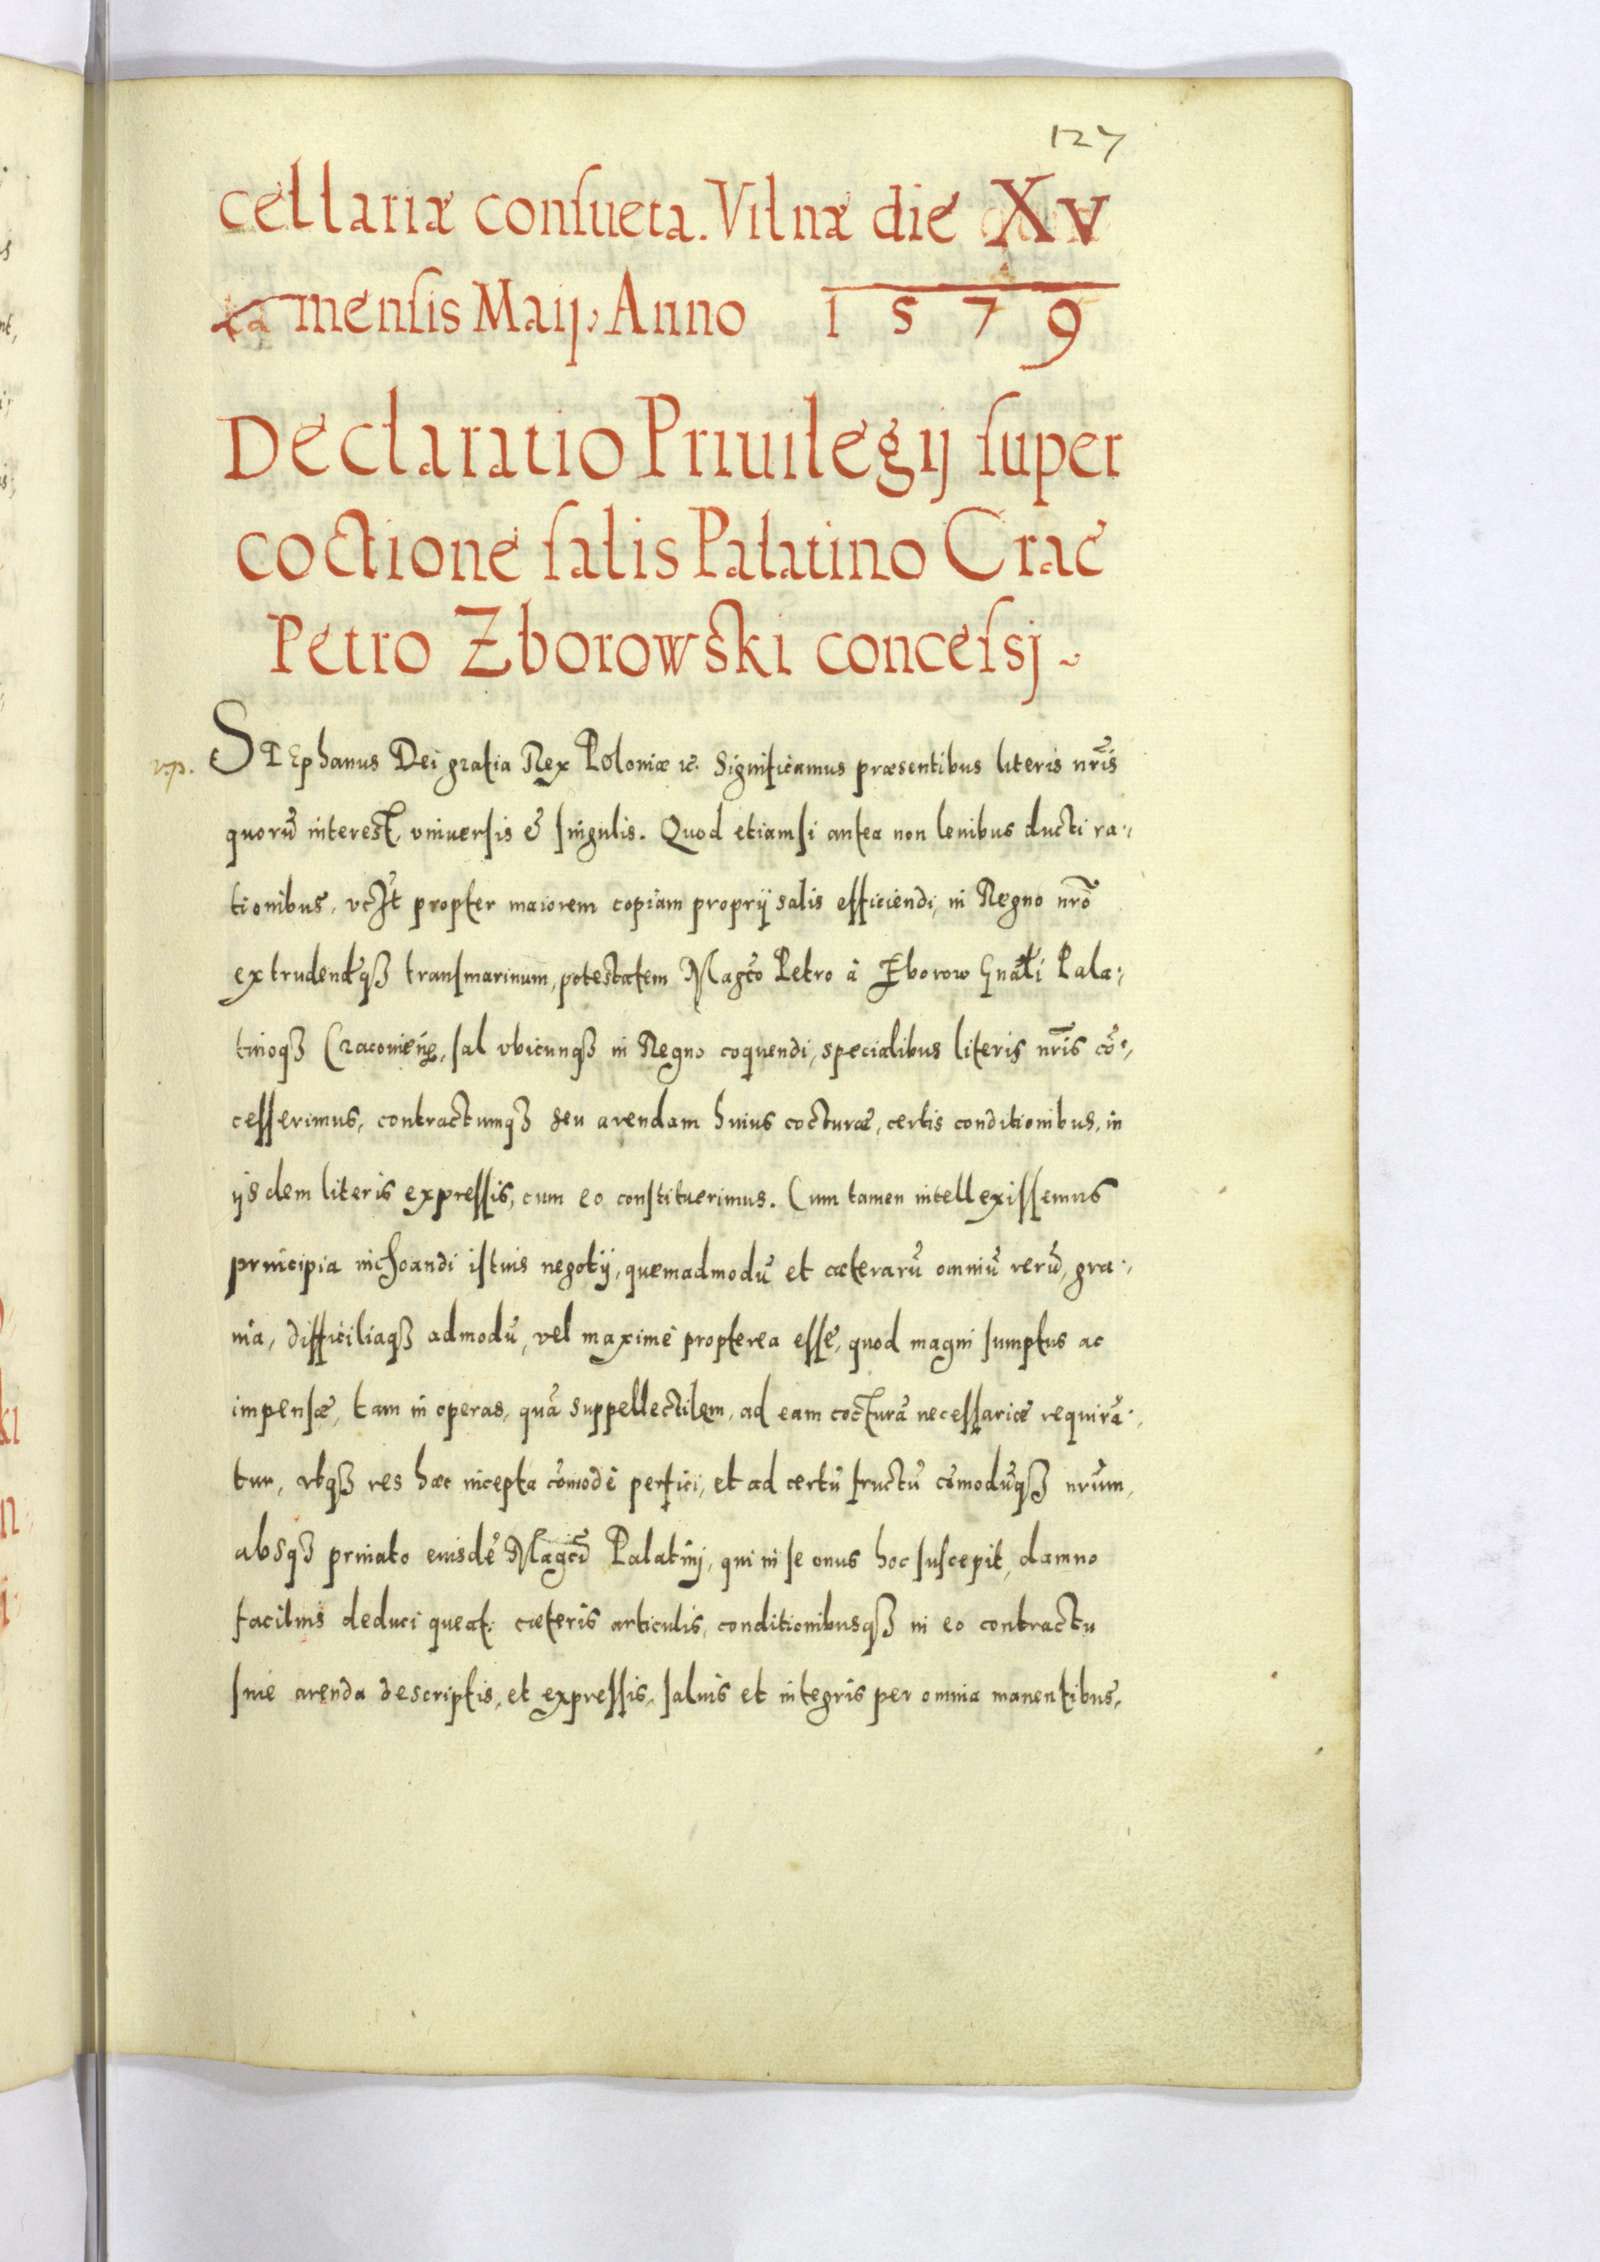 127
cellariæ consueta. Vilnæ die XV
mensis Maij. Anno 1579
Declaratio Priuilegij super
coctione salis Palatino Crac
Petro Zborowski concessj
v.p.
Stephanus Dei gratia Rex Poloniæ ꝛc. Significamus præsentibus literis nr̃is
quorũ interest, vniuersis & singulis. Quod etiamsi antea non lenibus ducti ra-,
tionibus, propter maiorem copiam proprij salis efficiendi, in Regno nrõ
extrudendiqꝫ transmarinum, potestatem Magco Petro à Zborow Gnãli Pala-,
tinoqꝫ Cracovieñ, sal vbicunqꝫ in Regno coquendi, specialibus literis nr̃is cõ-,
cesserimus, contractumqꝫ seu arendam huius cocturæ, certis conditionibus, in
ijsdem literis expressis, cum eo constituerimus. Cum tamen intellexissemus
principia inchoandi istius negotij, quemadmodũ et cæterarũ omniũ rerũ, gra-,
uia, difficiliaqꝫ admodũ, vel maximè propterea esse, quod magni sumptus ac
impensæ, tam in operas, quã suppellectilem, ad eam cocturã necessariæ requirã-,
tur, vtqꝫ res hæc incepta cõmodè perfici, et ad certũ fructũ cõmodũqꝫ nrũm,
absqꝫ priuato eiusdẽ Magci Palatinj, qui in se onus hoc suscepit, damno
facilius deduci queat: cæteris articulis, conditionibusqꝫ in eo contractu
siue arenda descriptis, et expressis, saluis et integris per omnia manentibus,